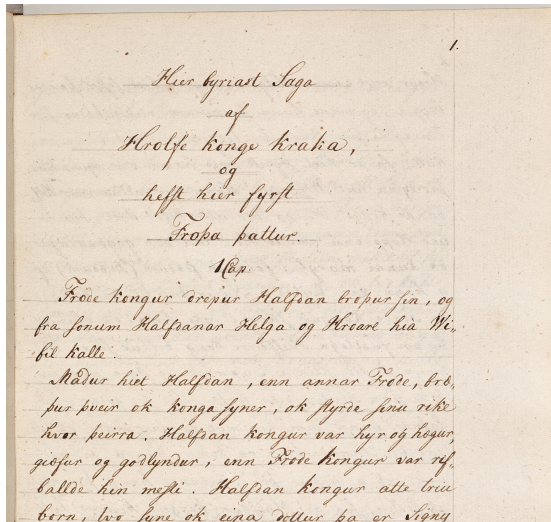 1.
Hier byriast Saga
af
Hrolfe konge Kraka,
og
hefst hier fyrst
Froþa þattur.
1 Cap:
Frode kongur drepur Halfdan broþur sin, og
fra sonum Halfdanar Helga og Hroare hia Wi-
fil kalle.
Madur hiet Halfdan, enn annar Frode, brö-
þur þveir ok konga syner, ok styrde sinu rike
hvor þeirra. Halfdan kongur var hyr og hægur,
giæfur og godlyndur, enn Frode kongur var rif-
ballde hin mesti. Halfdan kongur atte triu
born, tvo syne ok eina dottur þa er Signy